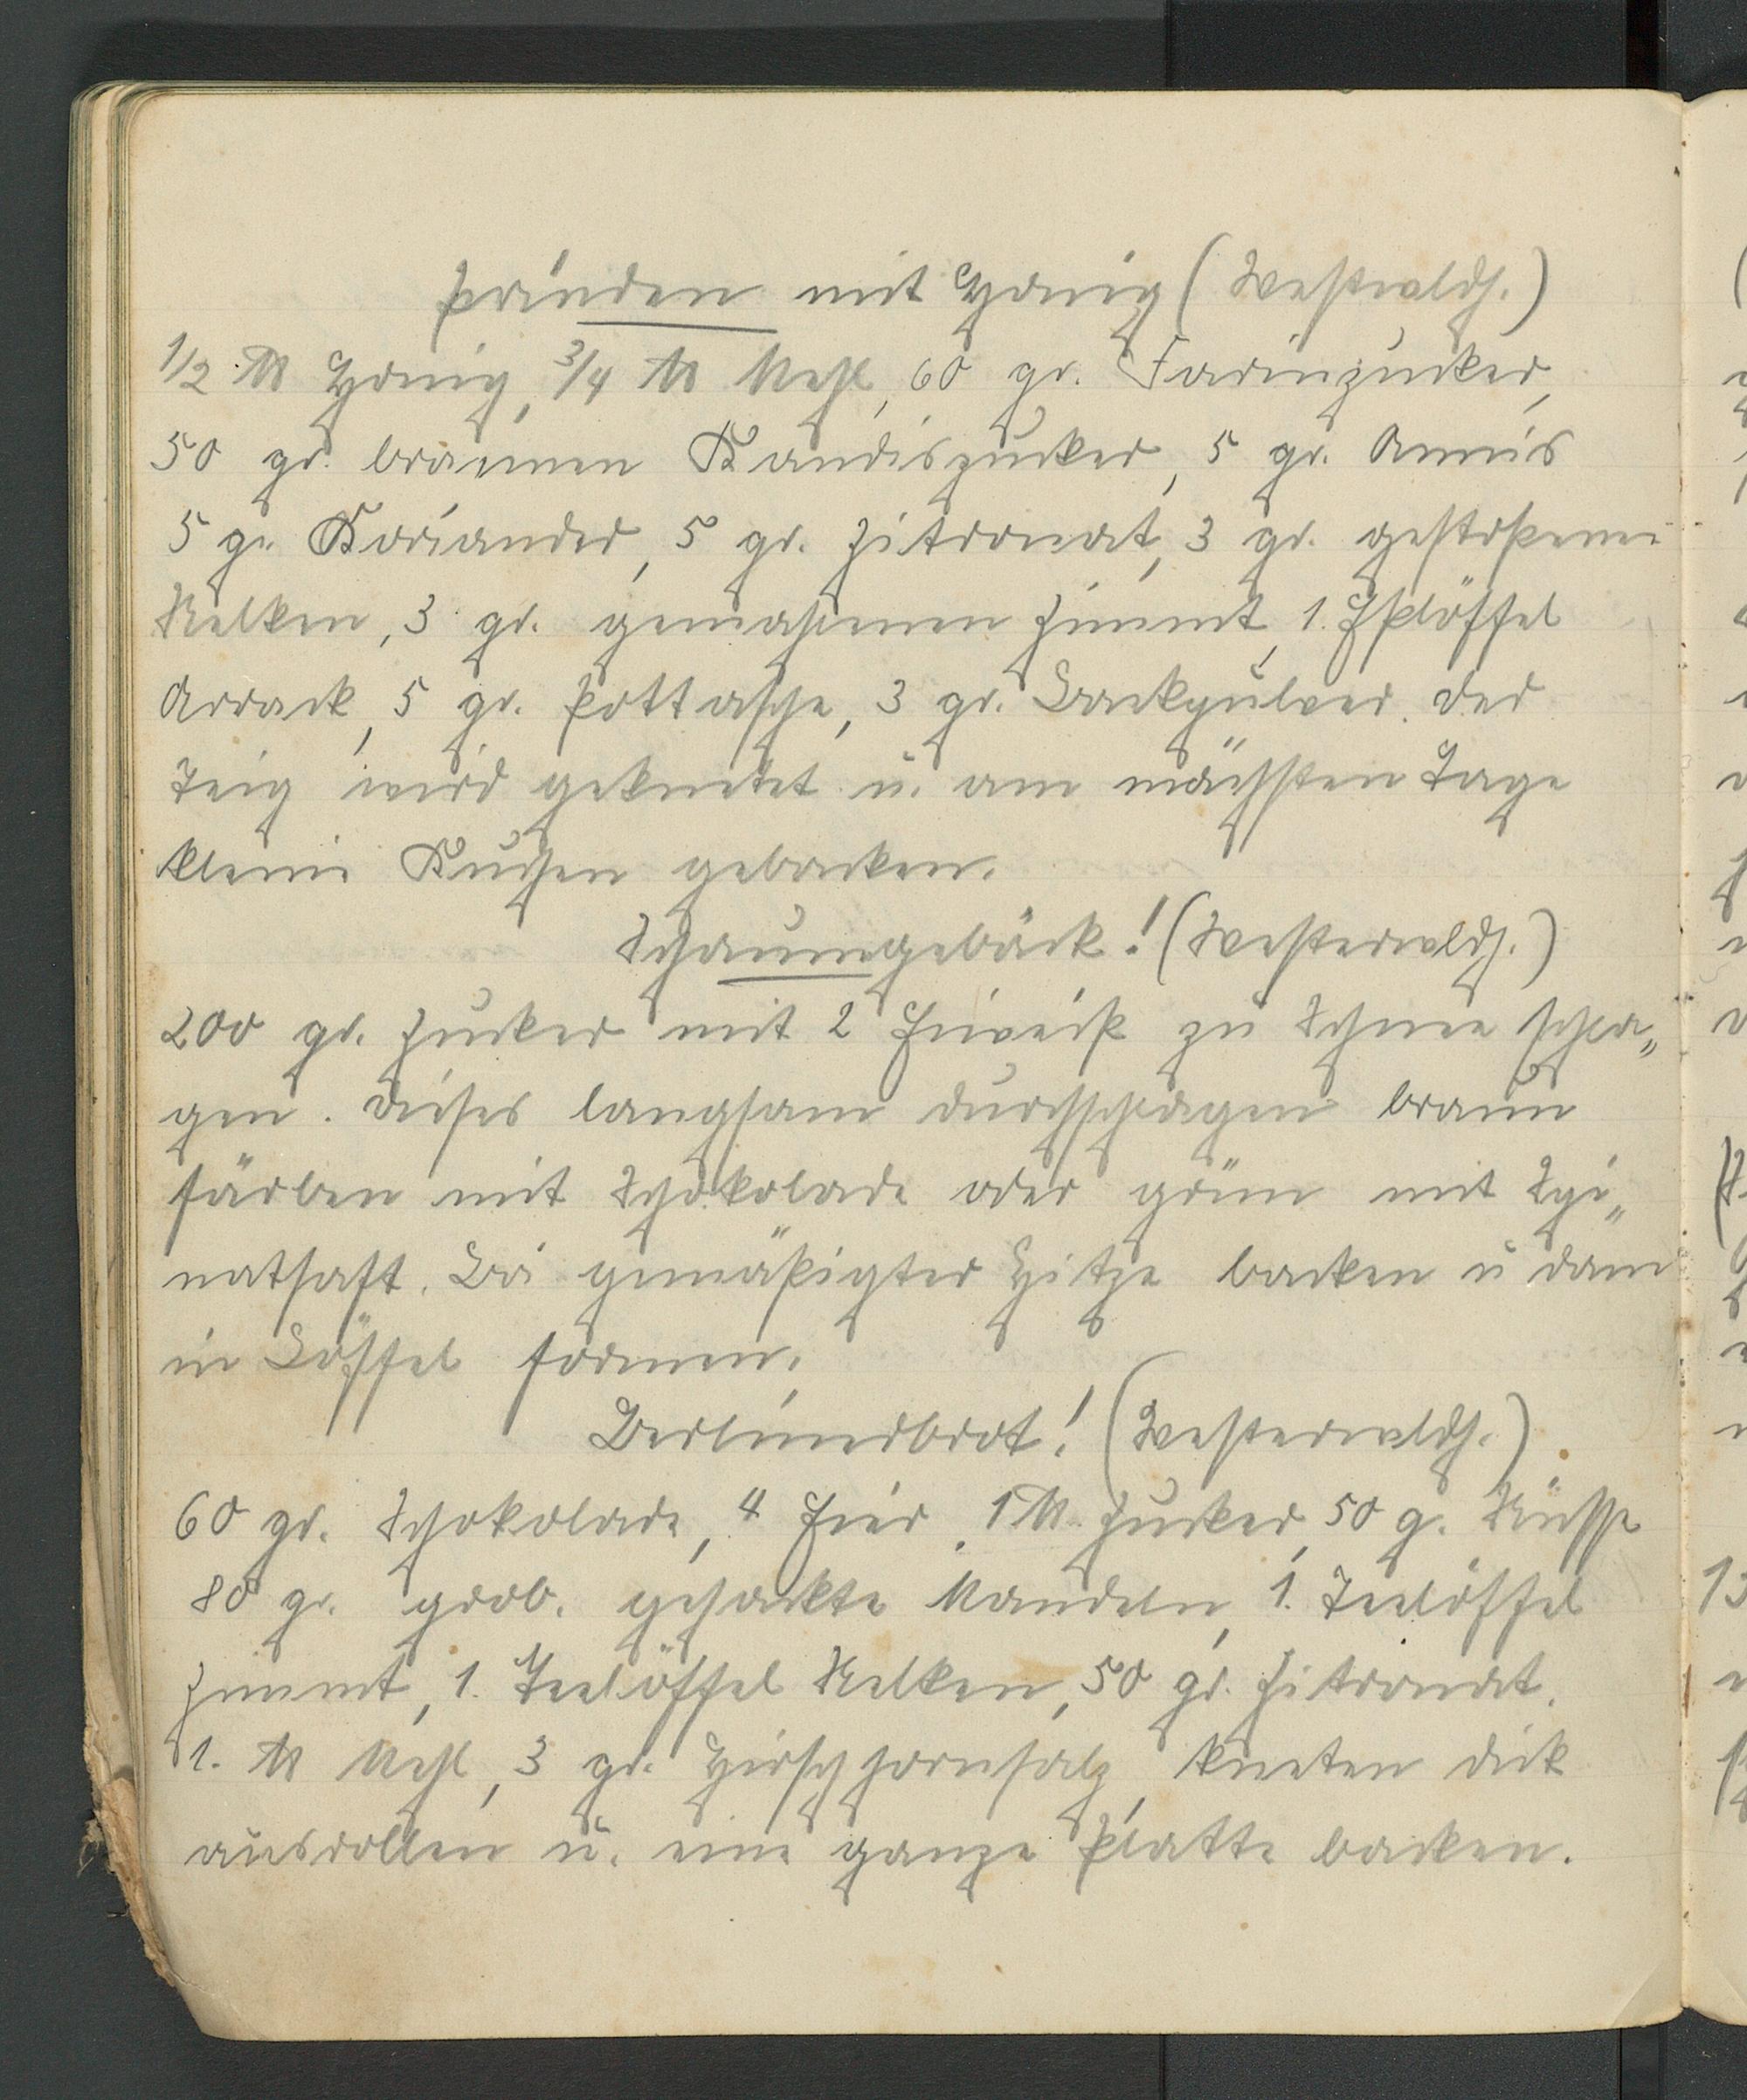 Printen mit Honig (Westwaldh.)
1/2 ℔ Honig, 3/4 ℔ Mehl, 60 gr. Farinzucker,
50 gr. braunen Kandiszucker, 5 gr. Annis
5 gr. Koriander, 5 gr. Zitronat, 3 gr. gestoßene
Nelken, 3 gr. gemahlenen Zimmt, 1. Eßlöffel
Arrack, 5 gr. Pottasche, 3 gr. Backpulver. Der
Teig wird geknetet u. am nächsten Tage
kleine Kuchen gebacken.
Schaumgebäck! (Westerwaldh.)
200 gr. Zucker mit 2 Eiweiß zu Schnee schla„
gen. Dieses langsam durchschlagen braun
färben mit Schokolade oder grün mit Spi„
natsaft. Bei gemäßigter Hitze backen u dann
in Löffel formen.
Berlinerbrot! (Westerwaldh.)
60 gr. Schokolade, 4 Eier, 1 ℔ Zucker, 50 g. Nüsse
80 gr. grob. gehackte Mandeln, 1. Teelöffel
Zimmt, 1. Teelöffel Nelken, 50 gr. Zitronat.
1. ℔ Mehl, 3 gr. Hirschhornsalz, kneten dick
ausrollen u. eine ganze Platte backen.